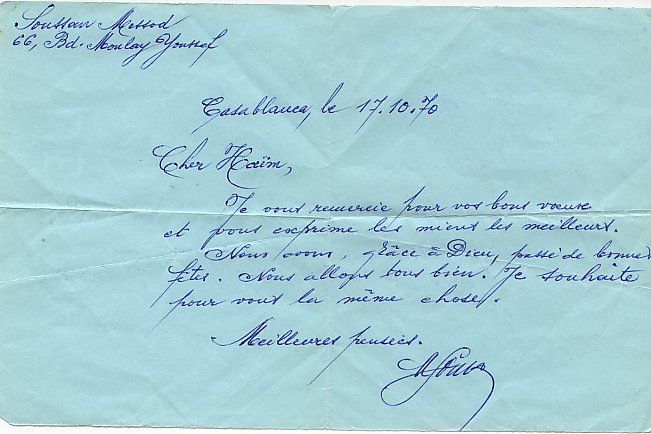 Soussan Messod
66, Bd. Moulay Youssef
Casablanca, le 17.10.70
Cher Haïm,
Je vous remercie pour vos bons voeux
et vous exprime les miens les meilleurs.
Nous avons, grâce à Dieu, passé de bonnes
fêtes. Nous allons tous bien. Je souhaite
pour vous la même chose.
Meilleures pensées.